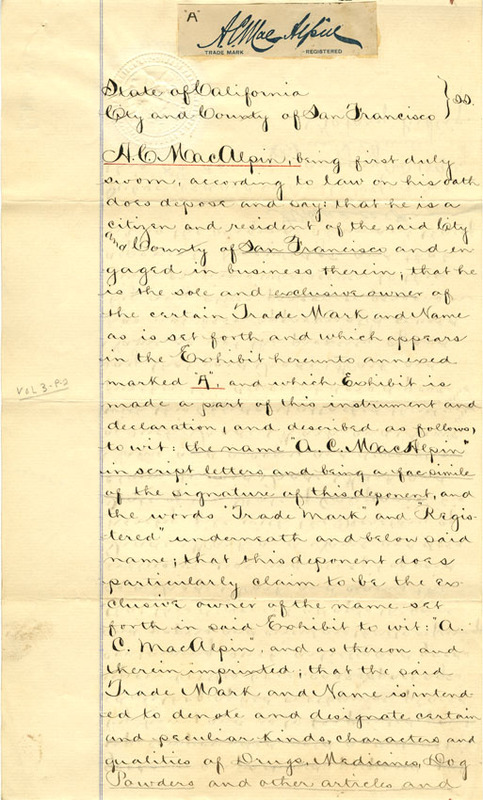 "A"
A.C. MacAlpin
TRADE MARK REGISTERED
State of California
City and County of San Francisco } ss.
A. C. MacAlpin, being first duly
sworn, according to law on his oath
does depose and say: that he is a
citizen and resident of the said City
and County of San Francisco and en
gaged in business therein; that he
is the sole and exclusive owner of
the certain Trade Mark and Name
as is set forth and which appears
in the Exhibit hereunto annexed
marked "A", and which Exhibit is
made a part of this instrument and
declaration, and described as follows,
to wit: the name "A. C. MacAlpin"
in script letters and being a facsimile
of the signature of this deponent, and
the words "Trade Mark" and "Regis-
tered" underneath and below said
name; that this deponent does
particularly claim to be the ex
clusive owner of the name set
forth in said Exhibit to wit: "A.
C. MacAlpin", and as thereon and
therein imprinted; that the said
Trade Mark and Name is intend
ed to denote and designate certain
and peculiar kinds, characters and
qualities of Drugs, Medicines, Dog
Powders and other articles and